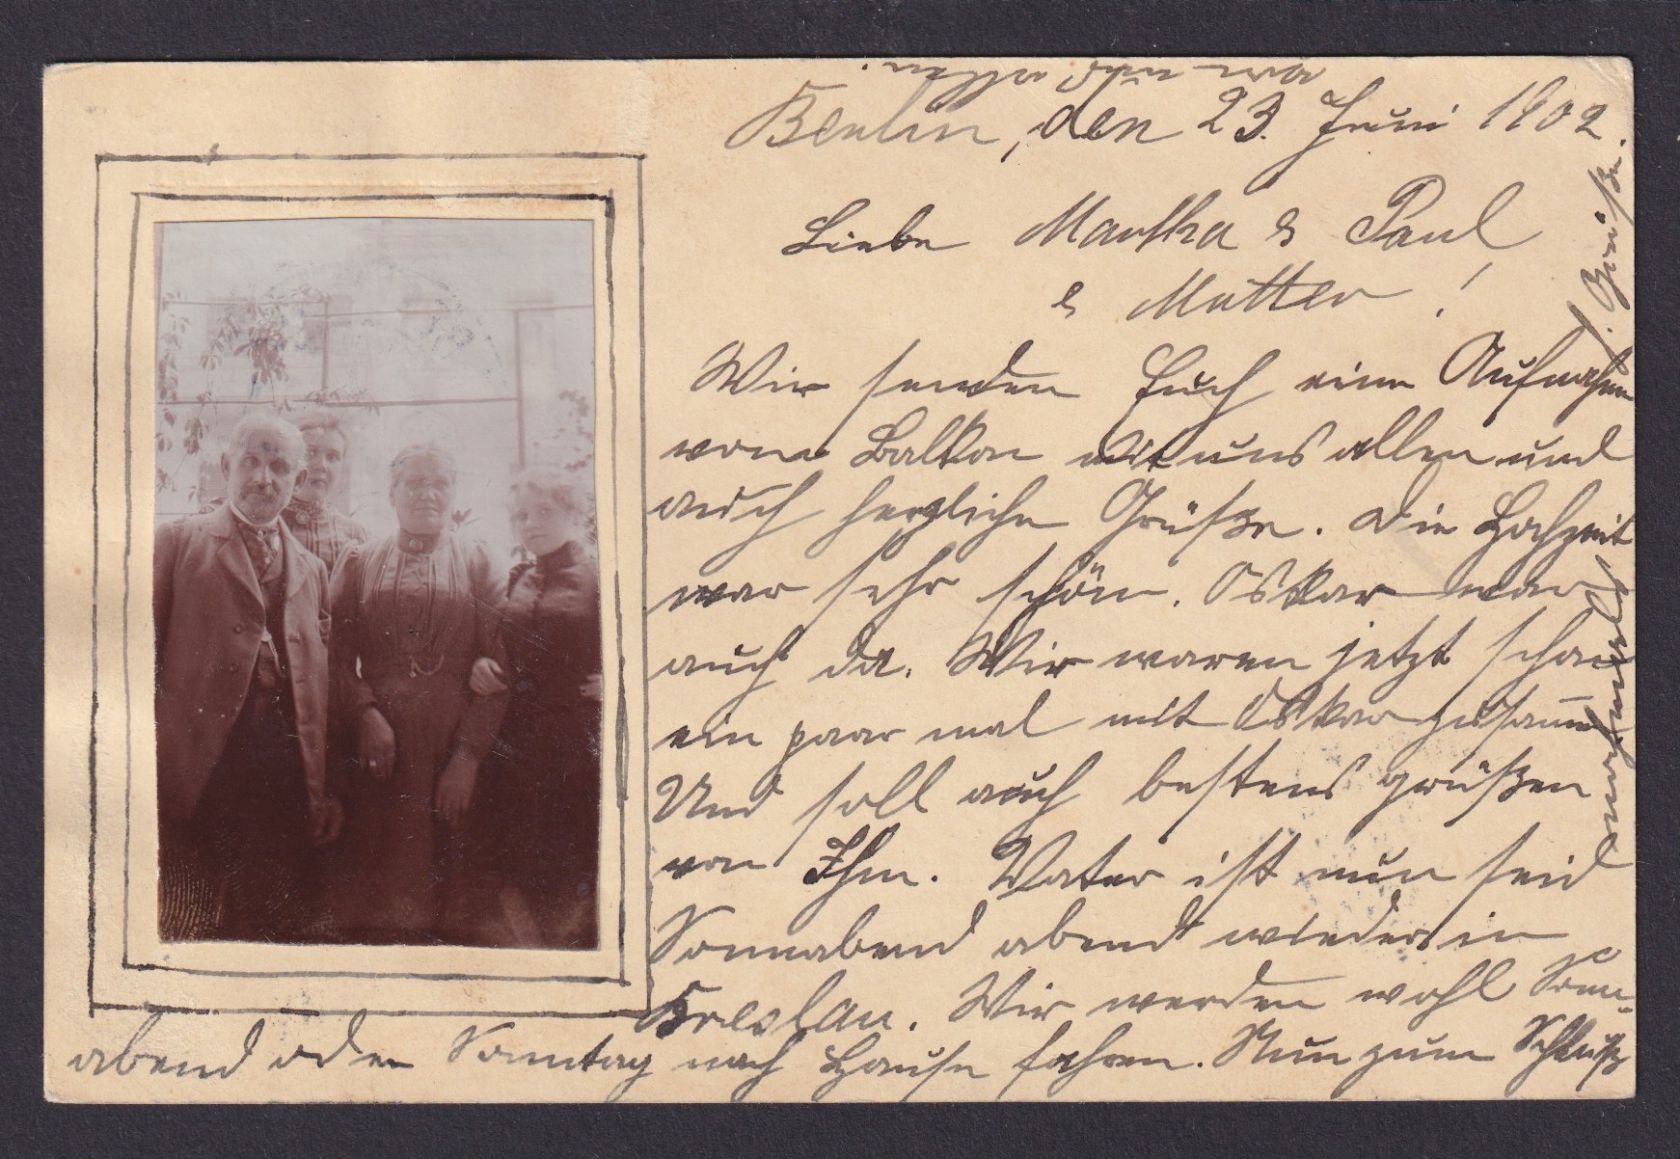 Berlin, den 23. Juni 1902.
Liebe Martha & Paul
& Mutter!
Wir senden Euch eine Aufnahme
vom Balkon mit uns allen und
auch herzliche Grüße. Die Hochzeit
war sehr schön. Oskar war
auch da. Wir waren jetzt schon
ein paar mal mit Oskar zusamm
Und soll auch bestens grüßen
von Ihm. Vater ist nun seid
Sonnabend abend wieder in
Breslau. Wir werden wohl Sonn-
abend oder Sonntag nach Hause fahren. Nun zum Schluß
nochmals Grüße.
von uns allen.